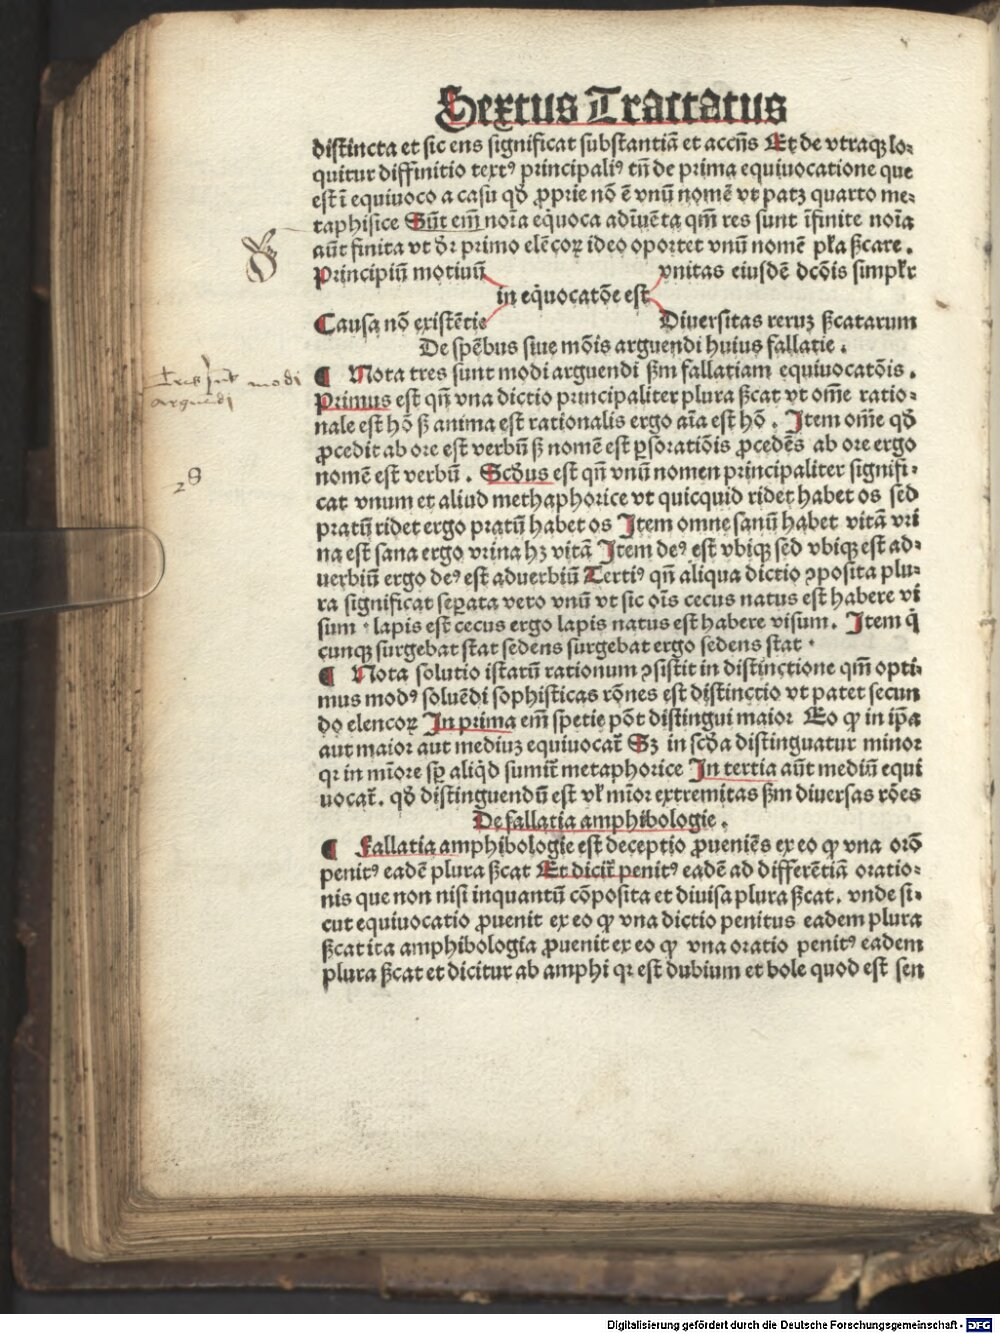 Sextus Tractatus
distincta et sic ens significat substantiā et accn̄s Et de vtraqꝫ lo⸗
quitur diffinitio textꝰ principalꝰ tn̄ de prima equiuocatione que
est ī equiuoco a casu qd̄ ꝓprie nō ē vnū nomē vt patꝫ quarto me⸗
taphisice Sūt em̄ noīa eq̄uoca adīuēta qm̄ res sunt īfinite noīa
aūt finita vt dr̄ primo elēcoꝝ ideo oportet vnū nomē pl̄a ẜcare .
Principiū motiuū vnitas eiusdē dcōis simplr̄
in eq̄uocatōe est
Causa nō existētie Diuersitas reruꝫ ẜcatarum
De spēbus siue mōis arguendi huius fallatie .
¶ Nota tres sunt modi arguendi ẜm fallatiam equiuocatōis .
Primus est qn̄ vna dictio principaliter plura ẜcat vt om̄e ratio⸗
nale est hō ẜ anima est rationalis ergo aīa est hō . Item om̄e qd̄
ꝓcedit ab ore est verbū ẜ nomē est ꝑsoratiōis ꝓcedēs ab ore ergo
nomē est verbū . Scd̄us est qn̄ vnū nomen principaliter signifi⸗
cat vnum et aliud methaphorice vt quicquid ridet habet os sed
pratū ridet ergo pratū habet os Item omne sanū habet vitā vri
na est sana ergo vrina hꝫ vitā Item deꝰ est vbiqꝫ sed vbiqꝫ est ad⸗
uerbiū ergo deꝰ est aduerbiū Tertiꝰ qn̄ aliqua dictio ꝯposita plu⸗
ra significat seꝑata vero vnū vt sic oīs cecus natus est habere vi
sum · lapis est cecus ergo lapis natus est habere visum . Item q̄
cunqꝫ surgebat stat sedens surgebat ergo sedens stat ·
¶ Nota solutio istarū rationum ꝯsistit in distinctione qm̄ opti⸗
mus modꝰ soluēdi sophisticas rōnes est distinctio vt patet secun
do elencoꝝ In prima em̄ spetie pōt distingui maior Eo ꝙ in ip̄a
aut maior aut mediuꝫ equiuocat̄ Sꝫ in scd̄a distinguatur minor
qꝛ in mīore sꝑ aliq̄d sumit̄ metaphorice In tertia aūt mediū equi
uocat̄ . qd̄ distinguendū est vl̄ mīor extremitas ẜm diuersas rōes
De fallatia amphibologie .
¶ Fallatia amphibologie est deceptio ꝓueniēs ex eo ꝙ vna orō
penitꝰ eadē plura ẜcat Et dicit̄ penitꝰ eadē ad differētiā oratio⸗
nis que non nisi inquantū cōposita et diuisa plura ẜcat . vnde si⸗
cut equiuocatio ꝓuenit ex eo ꝙ vna dictio penitus eadem plura
ẜcat ita amphibologia ꝓuenit ex eo ꝙ vna oratio penitꝰ eadem
plura ẜcat et dicitur ab amphi qꝛ est dubium et bole quod est sen
modi
arguendi
Digitalisierung gefördert durch die Deutsche Forschungsgemeinschaft - DFG